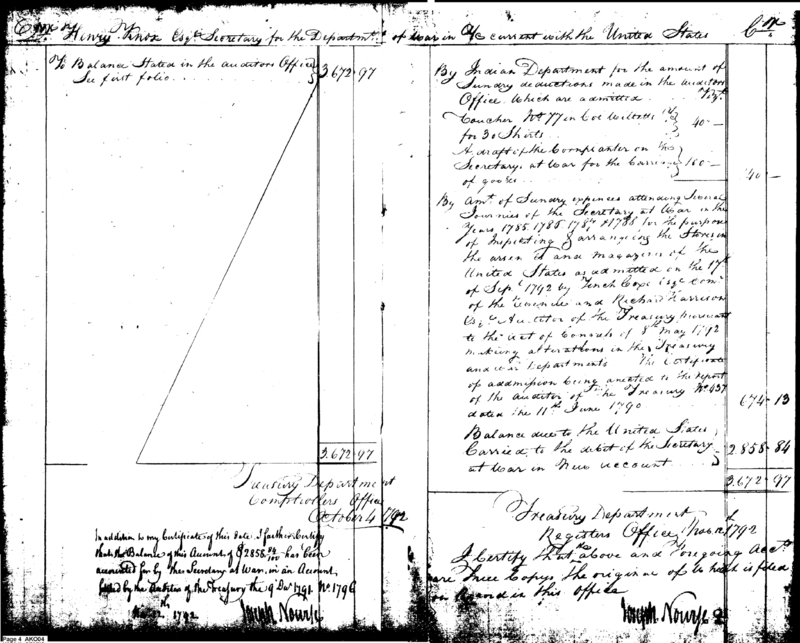 Henry Knox Esqr. Secretary for the Departmt. of War in a/c current with the United States Cr.
To Balance Stated in the Auditors Office
See first folio 3.672.97
3.672.97
Treasury Department
Comptrollers Office
October 4 1792
In addition to my Certificate of this date I further Certify
that the Balance of this Account of $2858 84/100 has been
accounted for by the Secretary at War, in an Account
settled by the Auditor of the Treasury the 19 Dec. 1791 No. 1796
1792
Joseph Nourse
By Indian Department for the amount of
Sundry deductions made in the Auditors
Office. Which are admitted Vizt.
Voucher No. 77 in Col
for 30 Shirts 40 —
A draft of the Cornplanter on the
Secretary at War for the Carriage 100 —
of goods
140 —
By Amt. of Sundry expences attending Several
Journies of the Secretary at War in the
Years 1785 1786 1787 & 1788 for the purpose
of Inspecting & arranging the Stores in
the arsenal and Magazines of the
United States as admitted on the 17th
of Sept. 1792 by Tench Coxe Esqr. Comr.
of the revenues and Richard Harrison
Esqr. Auditor of the Treasury pursuant
to the Act of Congress of 8th May 1792
making alterations in the Treasury
and War Departments The Certificate
of addmission being annexed to the report
of the Auditor of the Treasury No. 437
dated the 11th June 1790 674.13
Balance due to the United States
Carried to the debit of the Secretary 2.858.84
at War in New account
3.672.97
Treasury Department
Registers Office 1792
I Certify that the above and foregoing Acct.
are True Copys, the original of which is filed
on Record in this office
Joseph Nourse
Page 4 AKO04